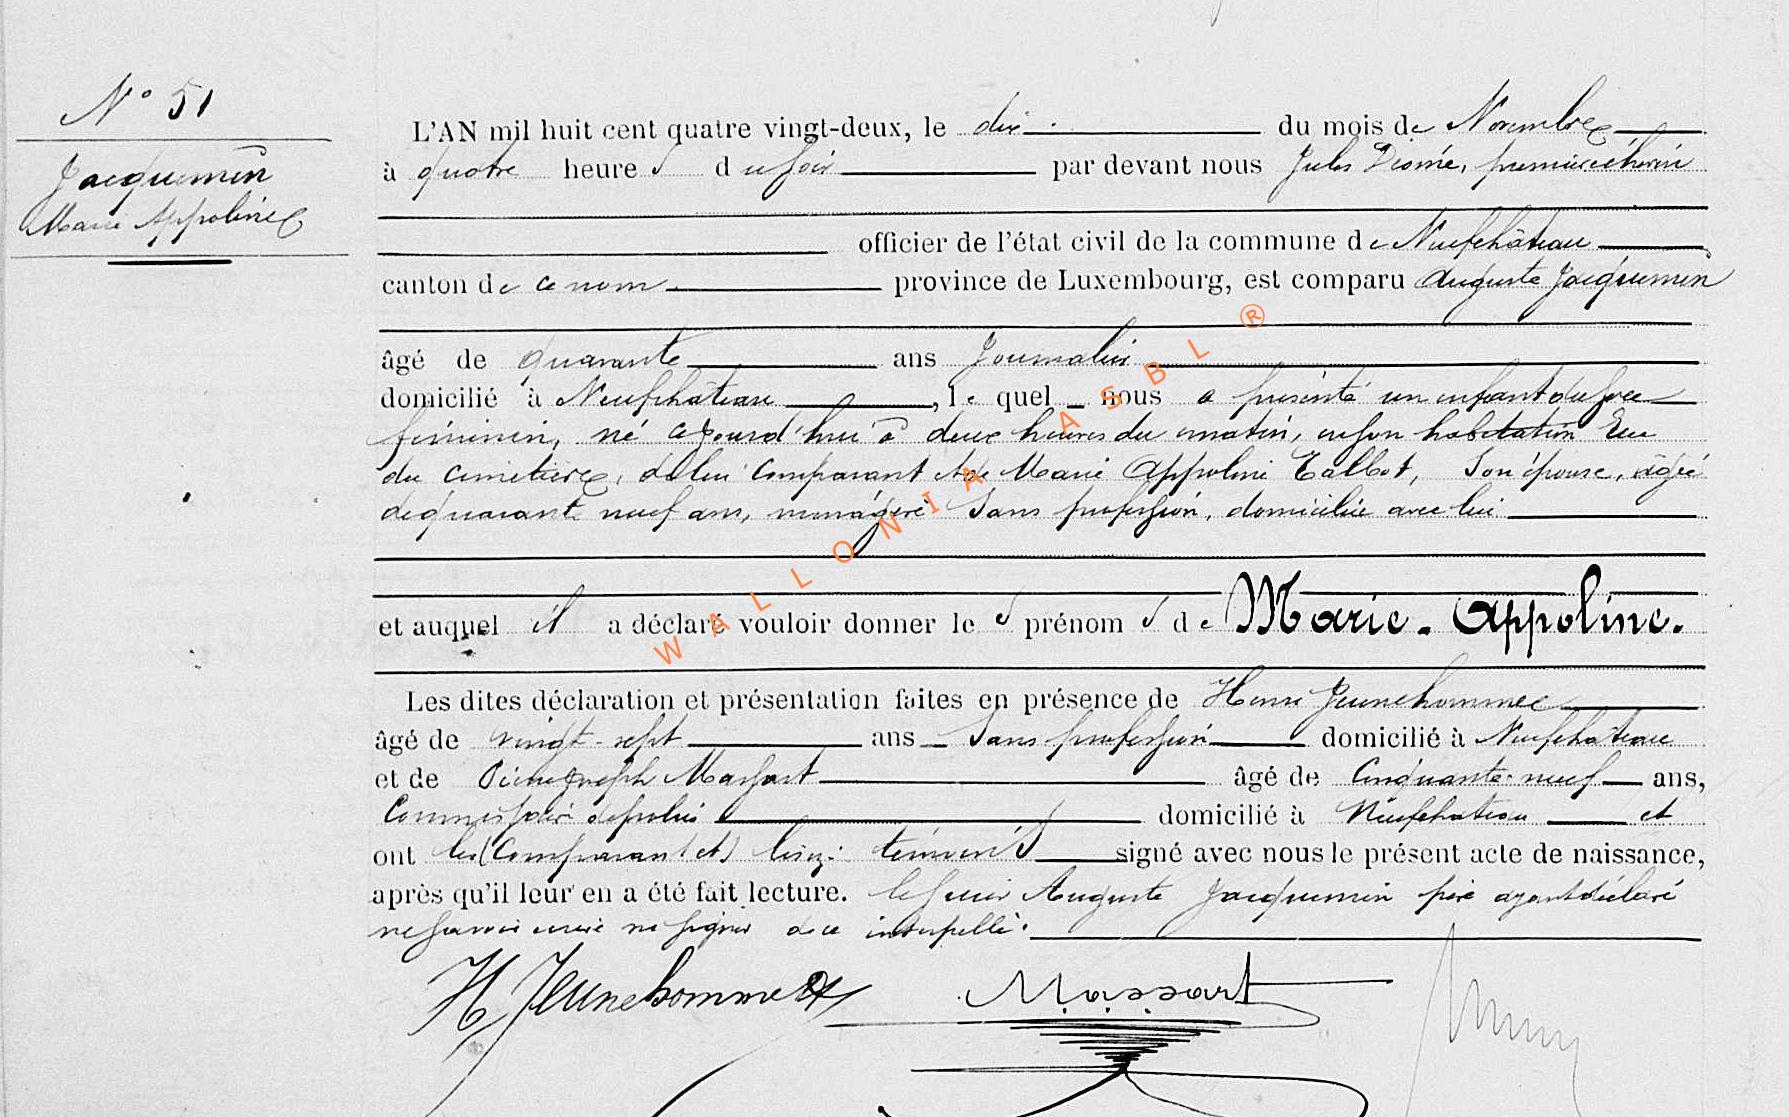 N° 51
Jacquemin
Marie Appoline
L'AN mil huit cent quatre vingt-deux, le dix du mois de Novembre
à quatre heures du soir par devant nous Jules premier échevin
officier de l'état civil de la commune de Neufchâteau
canton de ce nom province de Luxembourg, est comparu Auguste Jacquemin
âgé de quarante ans Journalier
domicilié à Neufchâteau, le quel nous a présenté un enfant du sexe
féminin, né aujourd'hui à deux heures du matin, en son habitation Rue
du cimetière, de lui comparant et de Marie Appoline Talbot, son épouse, âgée
de quarante neuf ans, ménagère sans profession, domiciliée avec lui
et auquel il a déclaré vouloir donner les prénoms de Marie-Appoline.
Les dites déclaration et présentation faites en présence de Henri Jeunehomme
âgé de vingt-sept ans sans profession domicilié à Neufchâteau
et de Pierre Joseph Massart âgé de cinquante-neuf ans,
Commissaire de police domicilié à Neufchâteau et
ont les (comparant et) témoins signé avec nous le présent acte de naissance,
après qu'il leur en a été fait lecture. le sieur Auguste Jacquemin père ayant déclaré
ne savoir écrire ni signer de ce interpellé.
H Jeunehomme Massart
WALLONIA ASBL ®